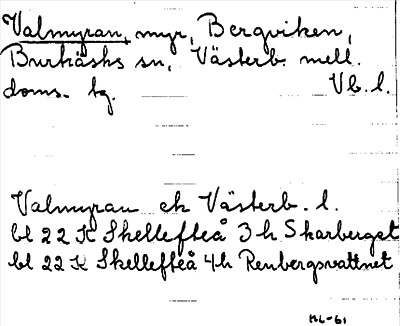 Valmyran, myr, Bergviken,
Burträsks sn, Västerb. mell.
doms. tg. Vb. l.
Valmyran ek Västerb. l.
bl 22 K Skellefteå 3h Skarberget
bl 22 K Skellefteå 4h Renbergsvattnet
HL-61